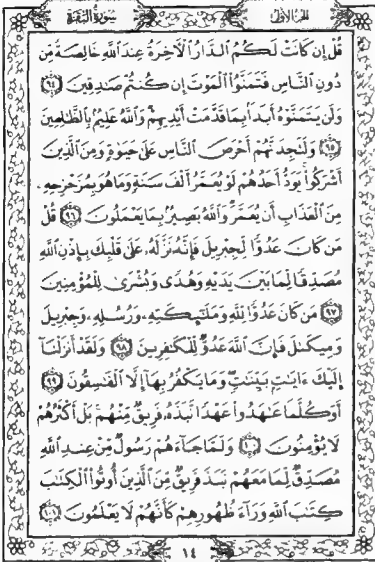 الجزء الأول
سورة البقرة
قُلْ إِن كَانَتْ لَكُمُ ٱلدَّارُ ٱلْآخِرَةُ عِندَ ٱللَّهِ خَالِصَةً مِّن
دُونِ ٱلنَّاسِ فَتَمَنَّوُا۟ ٱلْمَوْتَ إِن كُنتُمْ صَٰدِقِينَ ٩٤
وَلَن يَتَمَنَّوْهُ أَبَدًۢا بِمَا قَدَّمَتْ أَيْدِيهِمْ وَٱللَّهُ عَلِيمٌۢ بِٱلظَّٰلِمِينَ
٩٥ وَلَتَجِدَنَّهُمْ أَحْرَصَ ٱلنَّاسِ عَلَىٰ حَيَوٰةٍ وَمِنَ ٱلَّذِينَ
أَشْرَكُوا۟ يَوَدُّ أَحَدُهُمْ لَوْ يُعَمَّرُ أَلْفَ سَنَةٍ وَمَا هُوَ بِمُزَحْزِحِهِۦ
مِنَ ٱلْعَذَابِ أَن يُعَمَّرَ وَٱللَّهُ بَصِيرٌۢ بِمَا يَعْمَلُونَ ٩٦ قُلْ
مَن كَانَ عَدُوًّا لِّجِبْرِيلَ فَإِنَّهُۥ نَزَّلَهُۥ عَلَىٰ قَلْبِكَ بِإِذْنِ ٱللَّهِ
مُصَدِّقًا لِّمَا بَيْنَ يَدَيْهِ وَهُدًى وَبُشْرَىٰ لِلْمُؤْمِنِينَ
٩٧ مَن كَانَ عَدُوًّا لِّلَّهِ وَمَلَٰٓئِكَتِهِۦ وَرُسُلِهِۦ وَجِبْرِيلَ
وَمِيكَىٰلَ فَإِنَّ ٱللَّهَ عَدُوٌّ لِّلْكَٰفِرِينَ ٩٨ وَلَقَدْ أَنزَلْنَآ
إِلَيْكَ ءَايَٰتٍۭ بَيِّنَٰتٍ وَمَا يَكْفُرُ بِهَآ إِلَّا ٱلْفَٰسِقُونَ ٩٩
أَوَكُلَّمَا عَٰهَدُوا۟ عَهْدًا نَّبَذَهُۥ فَرِيقٌ مِّنْهُم بَلْ أَكْثَرُهُمْ
لَا يُؤْمِنُونَ ١٠٠ وَلَمَّا جَآءَهُمْ رَسُولٌ مِّنْ عِندِ ٱللَّهِ
مُصَدِّقٌ لِّمَا مَعَهُمْ نَبَذَ فَرِيقٌ مِّنَ ٱلَّذِينَ أُوتُوا۟ ٱلْكِتَٰبَ
كِتَٰبَ ٱللَّهِ وَرَآءَ ظُهُورِهِمْ كَأَنَّهُمْ لَا يَعْلَمُونَ ١٠١
١٤